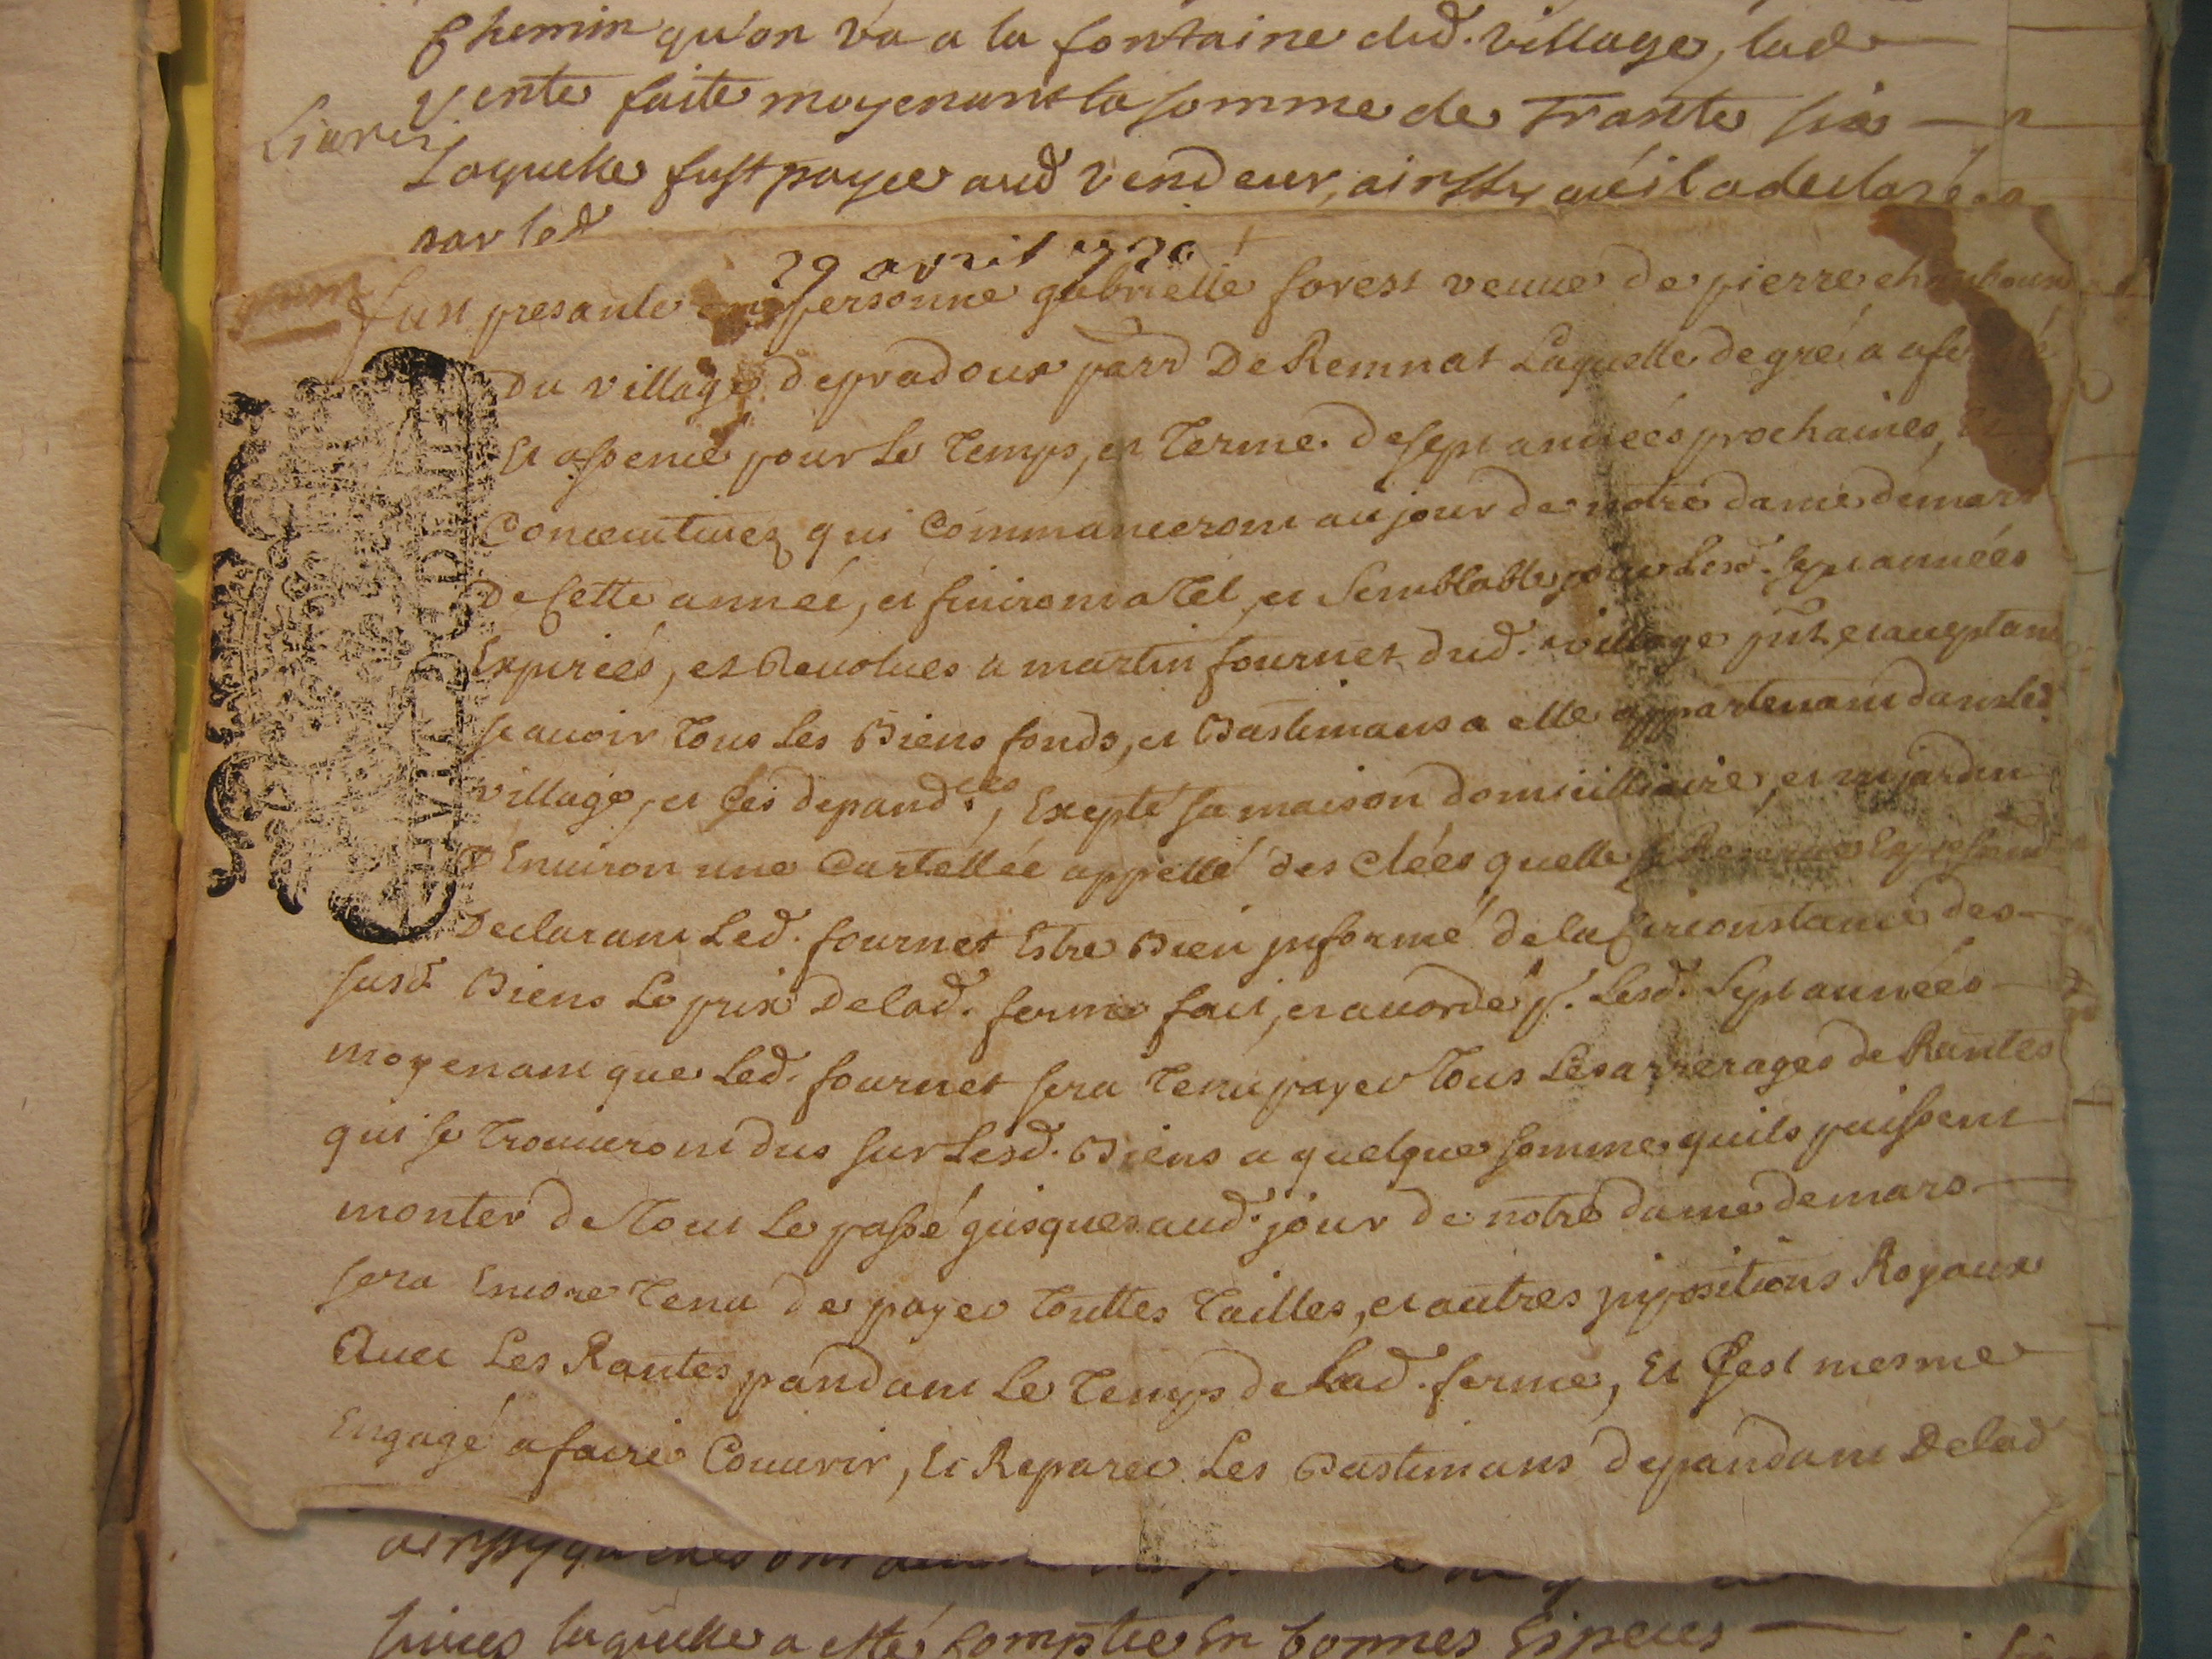 Chemin qu'on va a la fontaine dud. village, lad
vente faite moyenant la somme de Trante six
Livres
Laquelle fust payee aud vendeur, ainssy qu'il a declaré
par led
29 avril 1720
fust presante en personne gabrielle forest veuue de pierre
Du village de pradoux parr De Remnat Laquelle de gré a afermé
Et assencé pour Le Temps, et Terme de sept années prochaines, Et
Concecutiues qui Commanceront au jour de notre dame de mars
De Cette année, et finiront a Tel et Semblable jour Lesd. Sept années
Expirées, et Reuolues a martin fournet dud. village pnt, et acceptant
scauoir Tous Les Biens fonds, et Bastimans a elle appartenant dans led.
village, et ses depand.ces, Exepté sa maison domicilliaire, et un jardin
D'Enuiron une Cartellée appellé des Clées quelle se Reserue Expressemt
Declarant Led. fournet Estre Bien jnformé de la Circonstance des
susd. Biens Le prix De lad. ferme fait, et acordé p.r Lesd. Sept années
moyenant que Led. fournet sera Tenu payer Tous Les arrerages de Rantes
qui se Trouueront dus sur Lesd. Biens a quelque somme quils puissent
monter de Tout Le passé jusques aud. jour de notre dame de mars
sera Encore Tenu de payer Touttes Tailles, et autres jnpositions Royaux
Auec Les Rantes pandant Le Temps de Lad. ferme, Et C'est mesme
Engagé a faire Couurir, Et Reparer Les Bastimans depandant De lad
ainssy qu
liures laquelle a esté Comptée En bonnes Especes